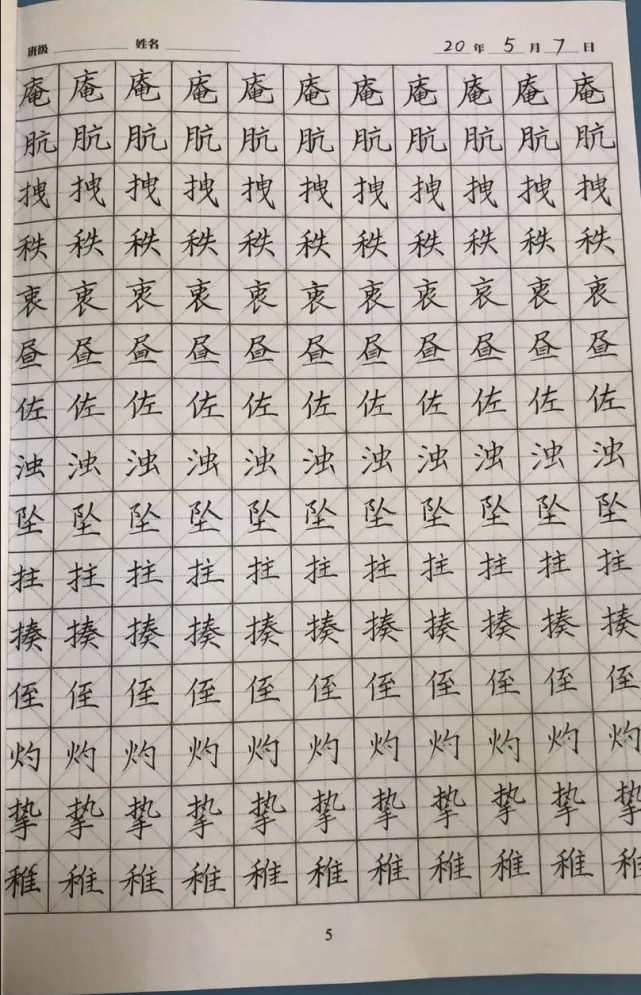 班级 姓名 20 年 5 月 7 日
庵 庵 庵 庵 庵 庵 庵 庵 庵 庵 庵
肮 肮 肮 肮 肮 肮 肮 肮 肮 肮 肮
拽 拽 拽 拽 拽 拽 拽 拽 拽 拽 拽
秩 秩 秩 秩 秩 秩 秩 秩 秩 秩 秩
衷 衷 衷 衷 衷 衷 衷 衷 哀 衷 衷
昼 昼 昼 昼 昼 昼 昼 昼 昼 昼 昼
佐 佐 佐 佐 佐 佐 佐 佐 佐 佐 佐
浊 浊 浊 浊 浊 浊 浊 浊 浊 浊 浊
坠 坠 坠 坠 坠 坠 坠 坠 坠 坠 坠
拄 拄 拄 拄 拄 拄 拄 拄 拄 拄 拄
揍 揍 揍 揍 揍 揍 揍 揍 揍 揍 揍
侄 侄 侄 侄 侄 侄 侄 侄 侄 侄 侄
灼 灼 灼 灼 灼 灼 灼 灼 灼 灼 灼
挚 挚 挚 挚 挚 挚 挚 挚 挚 挚 挚
稚 稚 稚 稚 稚 稚 稚 稚 稚 稚 稚
5